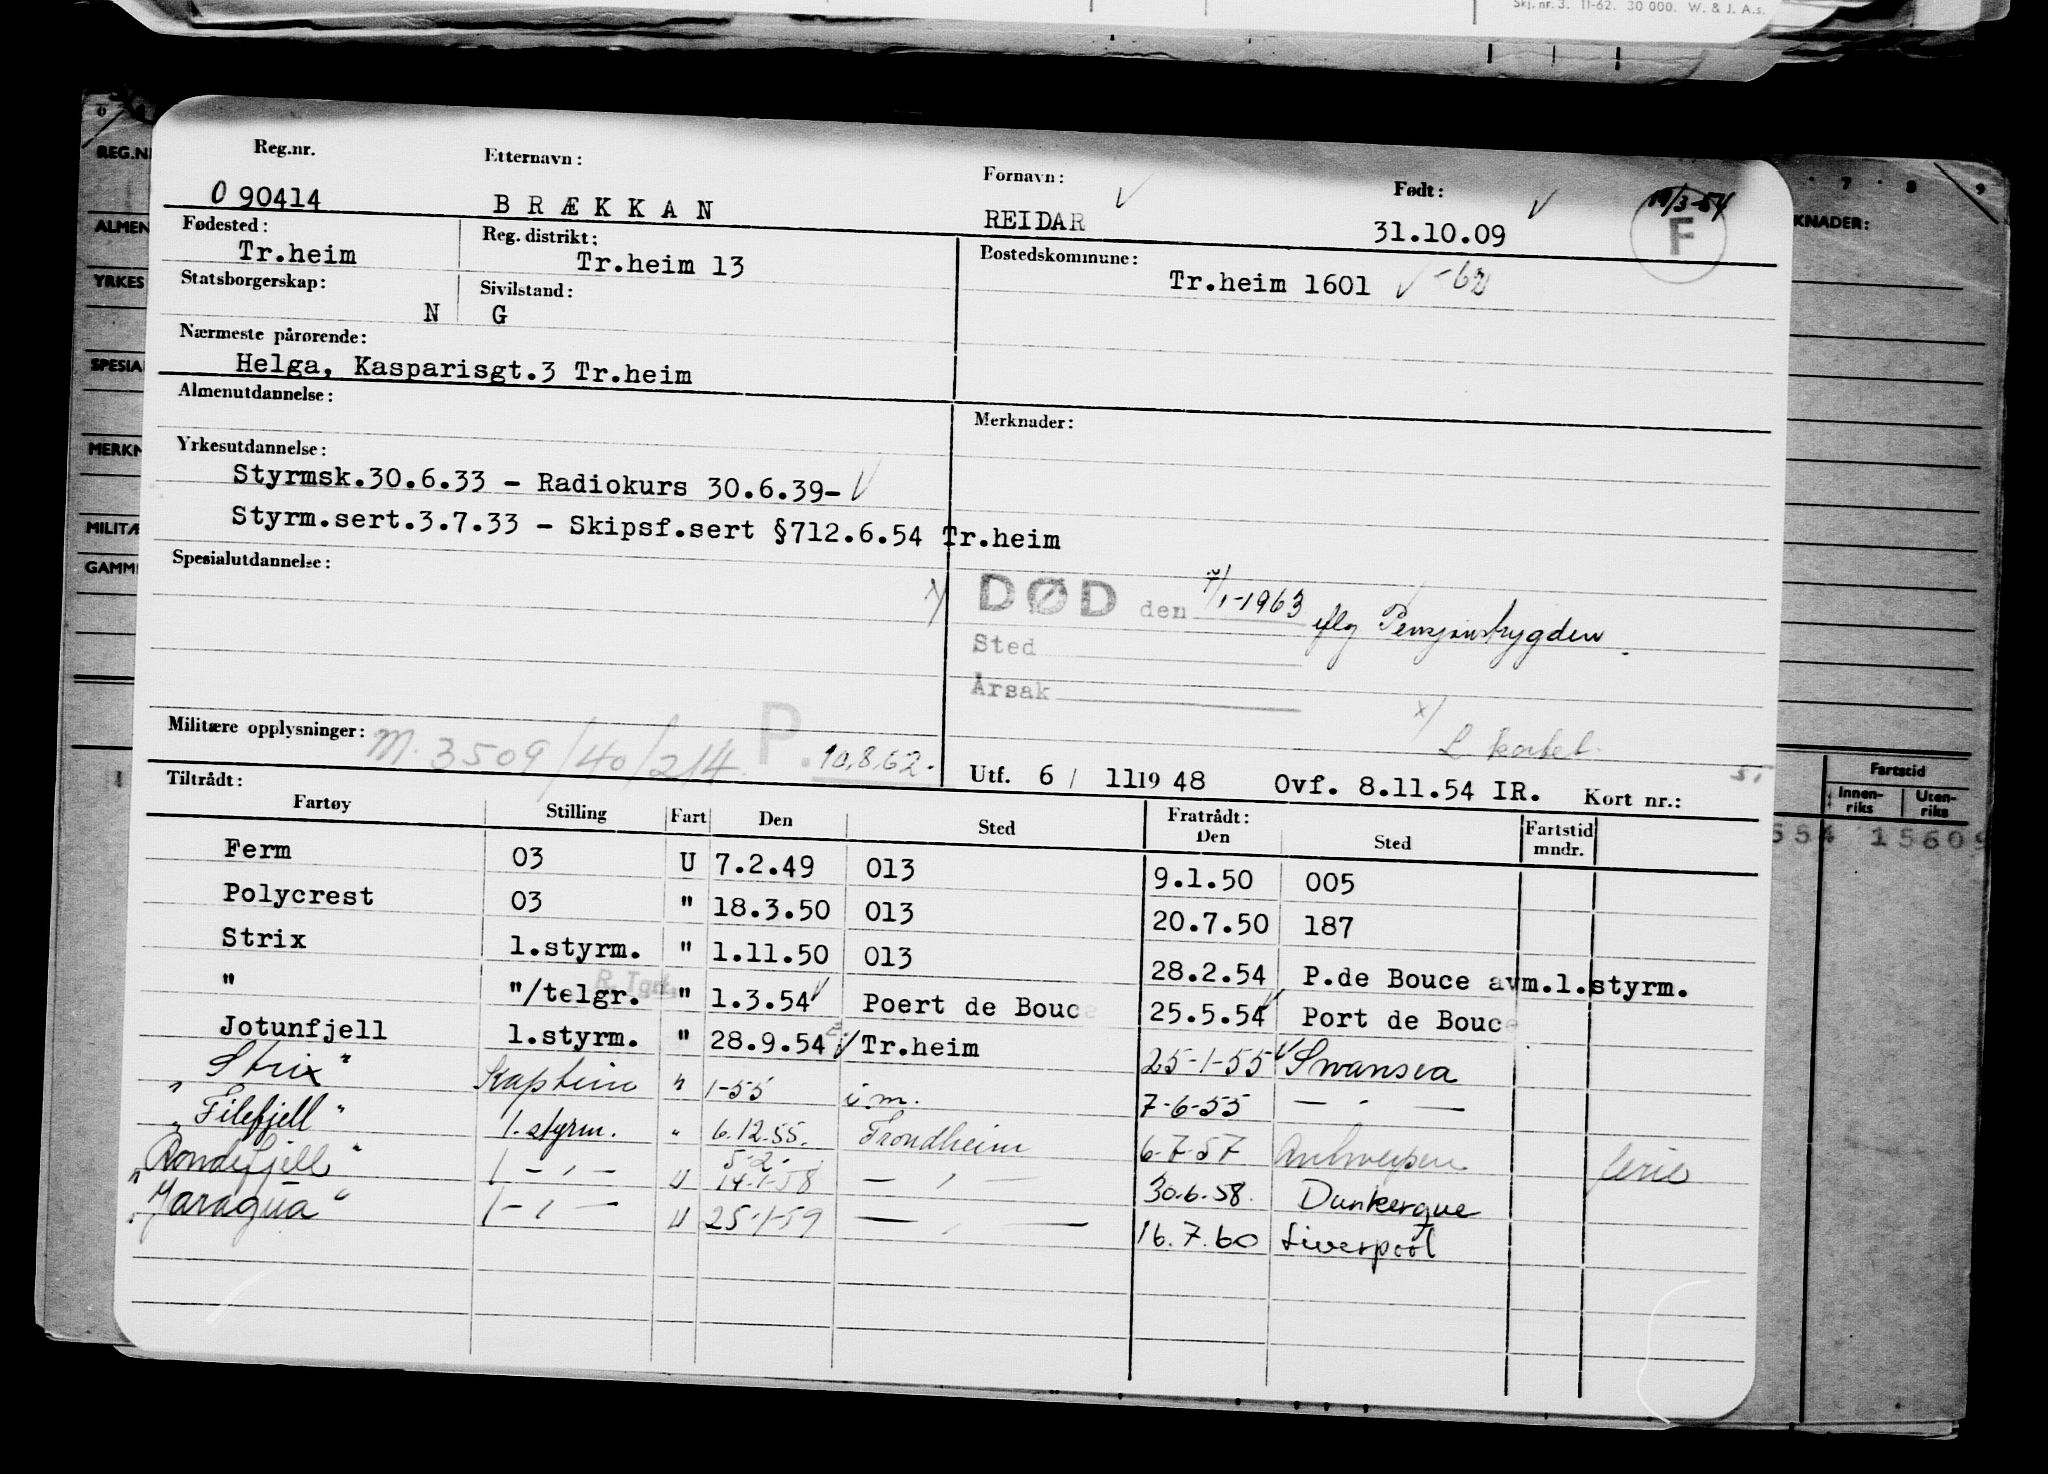 Skj. nr. 3. 11-62. 30 000. W. & J. A.s.
Reg.nr. Etternavn: Fornavn: Født: 7 8 9
REG.N
O 90414 BRÆKKAN REIDAR 31.10.09 F
ALMEN KNADER:
Fødested: Reg. distrikt: Bostedskommune:
Tr.heim Tr.heim 13 Tr.heim 1601 -62
YRKES
Statsborgerskap: Sivilstand:
N G
Nærmeste pårørende:
SPESIA
Helga, Kasparisgt.3 Tr.heim
Almenutdannelse: Merknader:
MERKN
Yrkesutdannelse:
Styrmsk.30.6.33 - Radiokurs 30.6.39-
MILITÆ
Styrm.sert.3.7.33 - Skipsf.sert §712.6.54 Tr.heim
GAMM
Spesialutdannelse:
x/ DØD den /1-1963 iflg Pensjonstrygden.
Sted
Årsak
x/
Militære opplysninger: M. 3509/40/214 P. 10.8.62.
L kortet.
Utf. 6 / 11 19 48 Ovf. 8.11.54 IR. Kort nr.:
Fartstid
Innen-riks Uten-riks
554 15609
Tiltrådt: Fratrådt:
Fartøy Stilling Fart Den Sted Den Sted Fartstid mndr.
Ferm 03 U 7.2.49 013 9.1.50 005
Polycrest 03 " 18.3.50 013 20.7.50 187
Strix 1.styrm. " 1.11.50 013 28.2.54 P.de Bouce avm.1.styrm.
R.Tgr.
" "/telgr. " 1.3.54 Poert de Bouce 25.5.54 Port de Bouce
Jotunfjell 1.styrm. " 28.9.54 Tr.heim 25-1-55 Swansea
Strix" Kaptein " 1-55 i.m. 7-6-55 — " —
"Filefjell" 1.styrm. " 6.12.55. Trondheim 6-7-57 Antwerpen ferie
5.2.
"Rondefjell" 1 - " - U 14-1-58 — " — 30.6.58. Dunkerque
"Jaragua" 1 - " - U 25-1-59 — " — 16.7.60 Liverpool